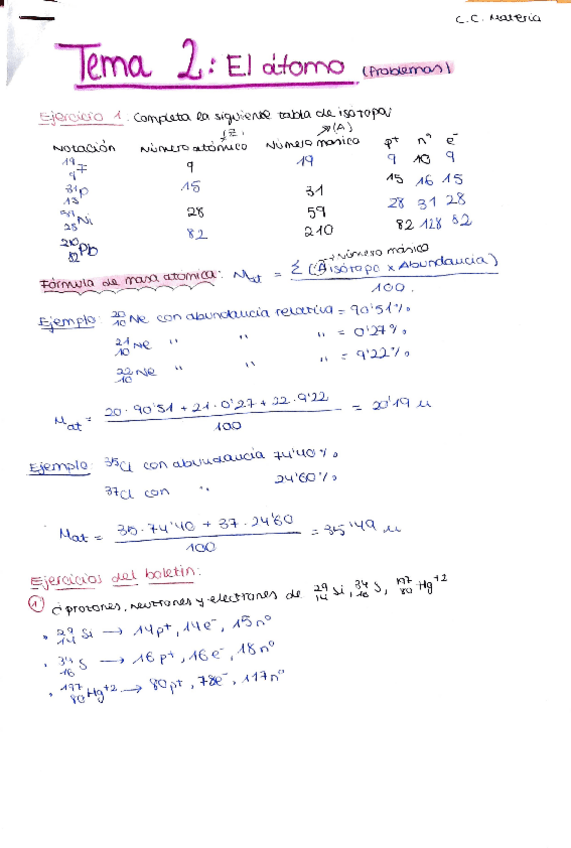 C.C. Materia
Tema 2: El átomo (Problemas)
Ejercicio 1. Completa la siguiente tabla de isótopos
(Z) (A)
Notación Número atómico Número másico p+ nº e-
19 9 F 9 19 9 10 9
31 15 P 15 31 15 16 15
28 Ni 28 59 28 31 28
210 82 Pb 82 210 82 128 82
Fórmula de masa atómica: Mat = Σ (A isótopo x Abundancia) / 100.
Número másico
Ejemplo: 20 10 Ne con abundancia relativa = 90'51%
21 10 Ne " " " = 0'27%
22 10 Ne " " " = 9'22%
Mat = 20·90'51 + 21·0'27 + 22·9'22 / 100 = 20'19 u
Ejemplo: 35Cl con abundancia 74'40%
37Cl con " 24'60%
Mat = 35·74'40 + 37·24'60 / 100 = 35'49 u
Ejercicios del boletín:
1 ¿protones, neutrones y electrones de 29 14 Si, 34 16 S, 197 80 Hg+2
· 29 14 Si → 14p+, 14e-, 15nº
· 34 16 S → 16p+, 16e-, 18nº
· 197 80 Hg+2 → 80p+, 78e-, 117nº